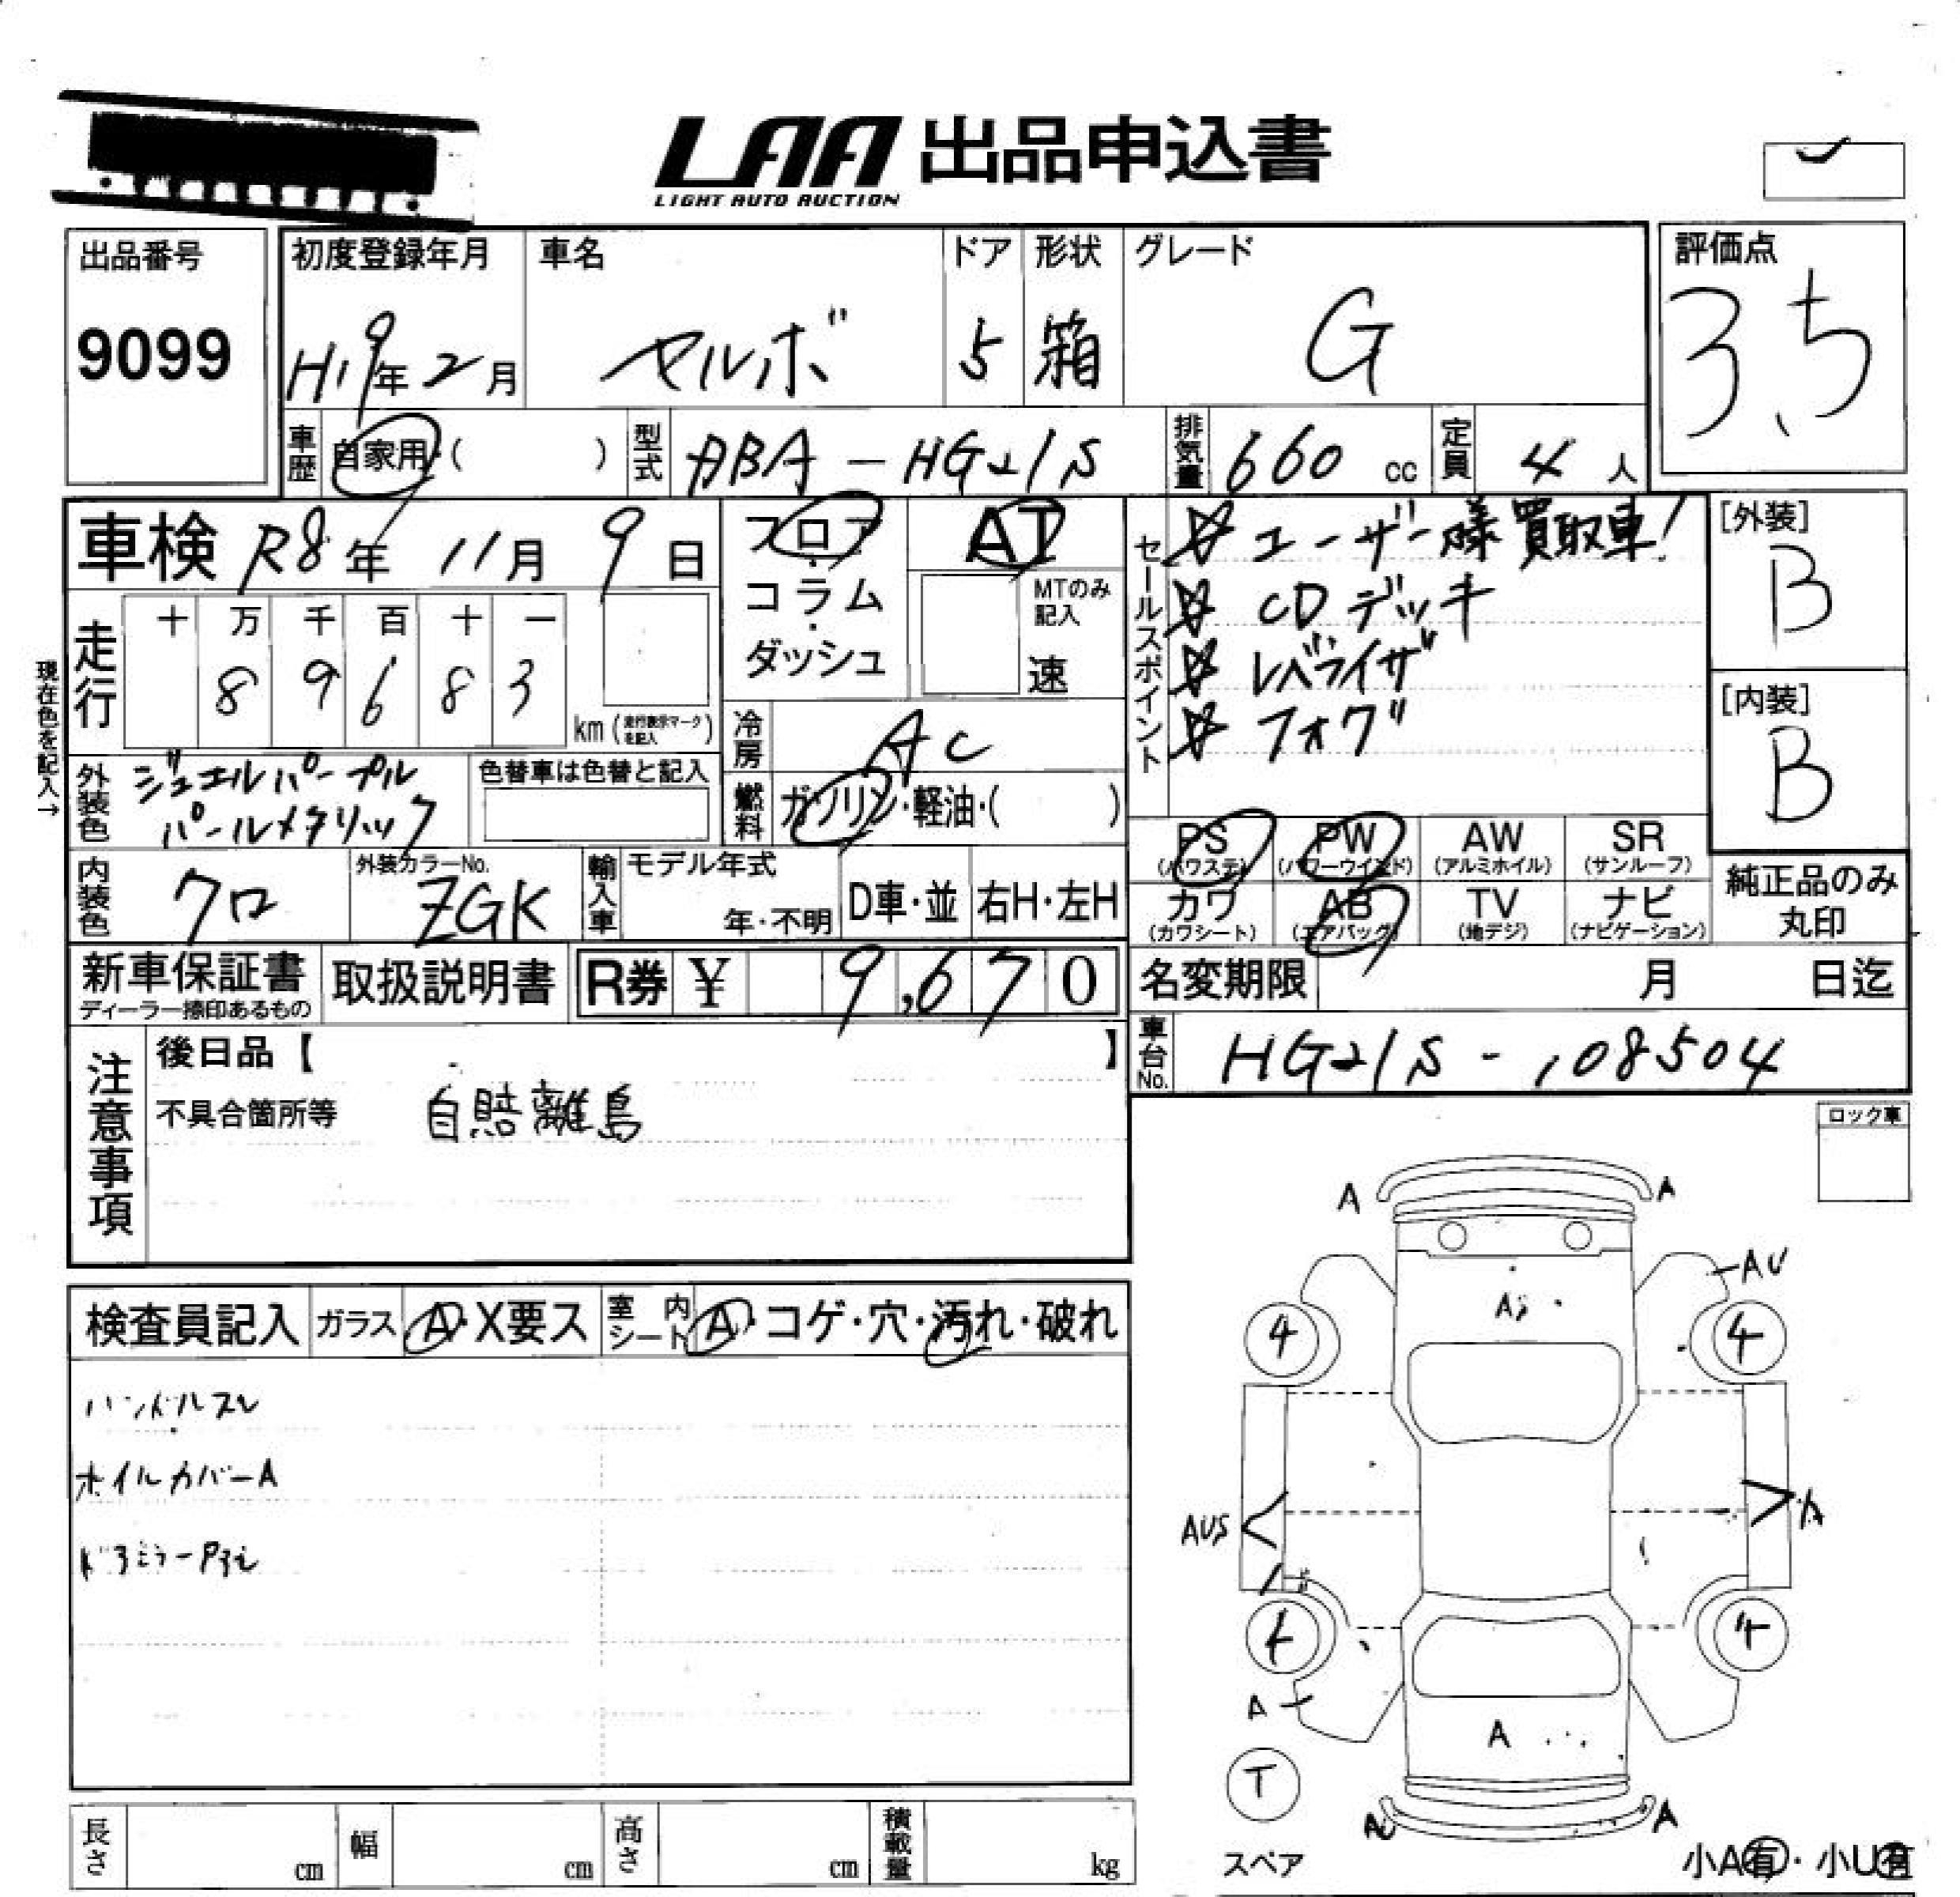 LAA 出品申込書
LIGHT AUTO AUCTION
出品番号
9099
初度登録年月
H19年2月
車名
セルボ
ドア
5
形状
箱
グレード
G
評価点
3.5
車歴
自家用・( )
型式
DBA-HG21S
排気量
660 cc
定員
4人
車検 R8年 11月 9日
フロア・コラム・ダッシュ
AT
MTのみ記入
速
セールスポイント
☆ ユーザー様買取車!
☆ CDデッキ
☆ レベライザ
☆ フォグ
[外装]
B
[内装]
B
現在色を記入→
走行
十 万 千 百 十 一
8 9 6 8 3
km (走行表示マークを記入)
冷房
AC
燃料
ガソリン・軽油・( )
外装色
ジュエルパープル
パールメタリック
色替車は色替と記入
PS (パワステ)
PW (パワーウインド)
AW (アルミホイル)
SR (サンルーフ)
カワ (カワシート)
AB (エアバッグ)
TV (地デジ)
ナビ (ナビゲーション)
純正品のみ丸印
内装色
クロ
外装カラーNo.
ZGK
輸入車
モデル年式
年・不明
D車・並
右H・左H
新車保証書
ディーラー捺印あるもの
取扱説明書
R券 ¥ 9,670
名変期限 月 日迄
車台No.
HG21S-108504
注意事項
後日品【 】
不具合箇所等
自賠離島
ロック車
検査員記入
ガラス A・X要ス
室内シート A・コゲ・穴・汚れ・破れ
ハンドルスレ
ホイルカバーA
A A
AU
4 4
AUS
4 4
A
A
T
スペア
A
小A有・小U有
長さ cm
幅 cm
高さ cm
積載量 kg